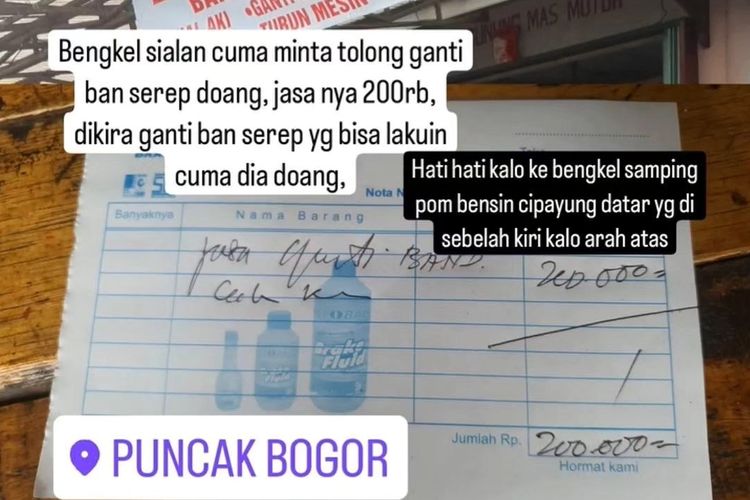 •GANTI
TURUN MESIN
MAS MOTOR
Bengkel sialan cuma minta tolong ganti
ban serep doang, jasa nya 200rb,
dikira ganti ban serep yg bisa lakuin
cuma dia doang,
Hati hati kalo ke bengkel samping
pom bensin cipayung datar yg di
sebelah kiri kalo arah atas
Nota N
Banyaknya Nama Barang
jasa Ganti BAND. 200.000=
Brake
Fluid
Jumlah Rp. 200.000=
Hormat kami
PUNCAK BOGOR